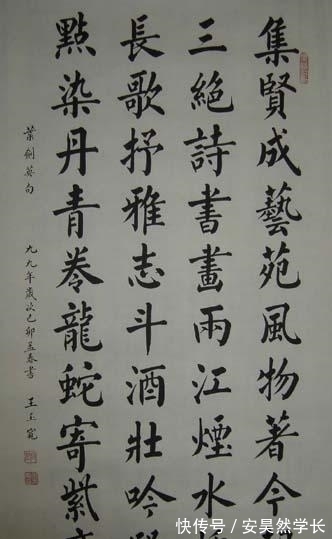 集賢成藝苑風物著今
三絕詩書畫兩江煙水
長歌抒雅志斗酒壯吟
點染丹青卷龍蛇寄紫
葉劍英句
九九年歲次己卯孟春書 王玉寬
快传号/安昊然学长